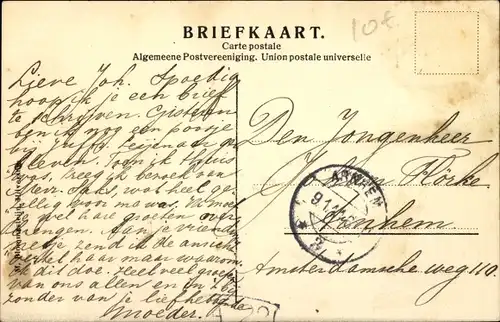 10€
BRIEFKAART.
Carte postale
Algemeene Postvereeniging. Union postale universelle
Lieve Joh. Spoedig
hoop ik je een brief
te schrijven. Gisteren
ben ik nog een poosje
bij Juffr.
Toen ik thuis
was, kreeg ik bezoek van
Mevr. wat heel ge-
zellig voor ma was. Je moest
wel hare groeten over-
brengen. Aan je vriende
zend ik de ansicht
haar maar waarom
ik dit doe. Heel veel
van ons allen en in 't bij-
zonder van je liefhebbende
Moeder.
Den Jongenheer
Joh. Flörke
Arnhem.
Amsterdamsche weg 110.
ARNHEM